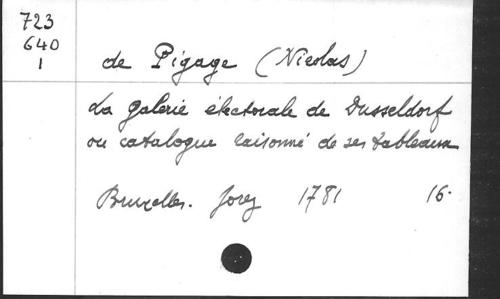 723
640
1
de Pigage (Nicolas)
La galerie électorale de Dusseldorf
ou catalogue raisonné de ses tableaux
Bruxelles. Jorez 1781 16.